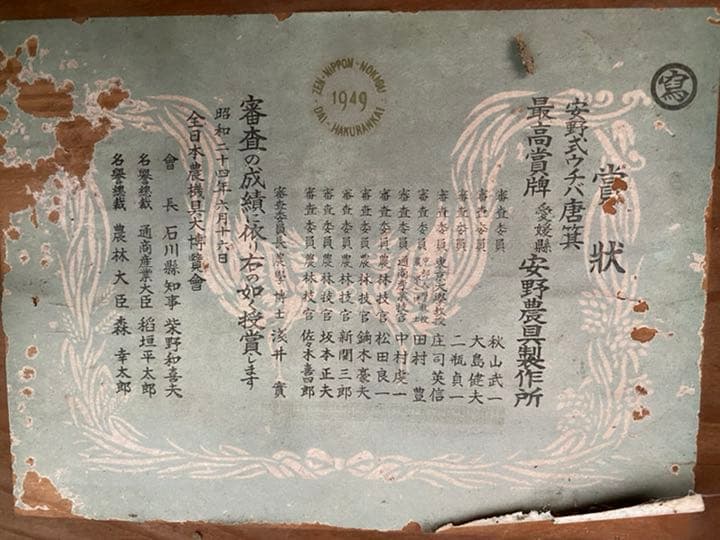 寫
賞狀
安野式ウチバ唐箕
最高賞牌 愛媛縣 安野農具製作所
審査委員 秋山武一
審査委員 大島健夫
審査委員 二瓶貞一
審査委員 東京大學教授 庄司英信
審査委員 田村豊
審査委員 通商産業技官 中村虔一
審査委員 農林技官 松田良一
審査委員 農林技官 鏑木豪夫
審査委員 農林技官 新関三郎
審査委員 農林技官 坂本正夫
審査委員 農林技官 佐々木喜四郎
審査委員長 農學博士 浅井 實
審査の成績に依り右の如く授賞します
昭和二十四年六月十六日
全日本農機具大博覽會
會長 石川縣知事 柴野和喜夫
名譽總裁 通商産業大臣 稻垣平太郎
名譽總裁 農林大臣 森 幸太郎
ZEN-NIPPON-NOKIGU
1949
DAI-HAKURANKAI